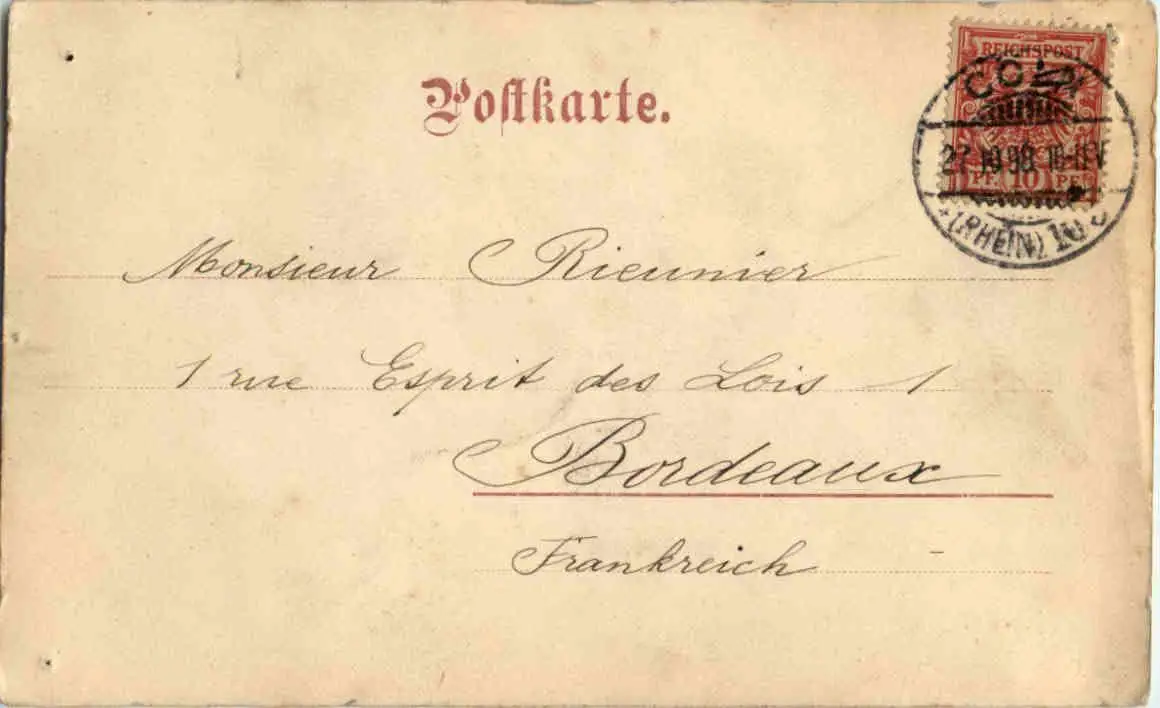 Postkarte.
REICHSPOST
CÖLN
27.10.98. 10-11V
PF. 10 PF.
(RHEIN) 10
Monsieur Rieunier
1 rue Esprit des Lois 1
Bordeaux
Frankreich